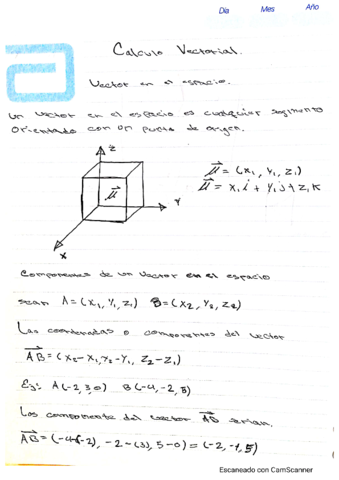 Dia Mes Año
Calculo Vectorial.
Vector en el espacio.
Un vector en el espacio es cualquier segmento
orientado con un punto de origen.
Z
μ⃗ = (x₁, y₁, z₁)
μ⃗
μ⃗ = x₁i + y₁j + z₁k
Y
X
Componentes de un vector en el espacio
sean A=(x₁, y₁, z₁) B=(x₂, y₂, z₂)
Las coordenadas o componentes del vector
AB⃗ = (x₂-x₁, y₂-y₁, z₂-z₁)
Ej: A(-2,3,0) B(-4,-2,5)
Los componente del vector AB⃗ serian.
AB⃗ = (-4-(-2), -2-(3), 5-0) = (-2,
Escaneado con CamScanner